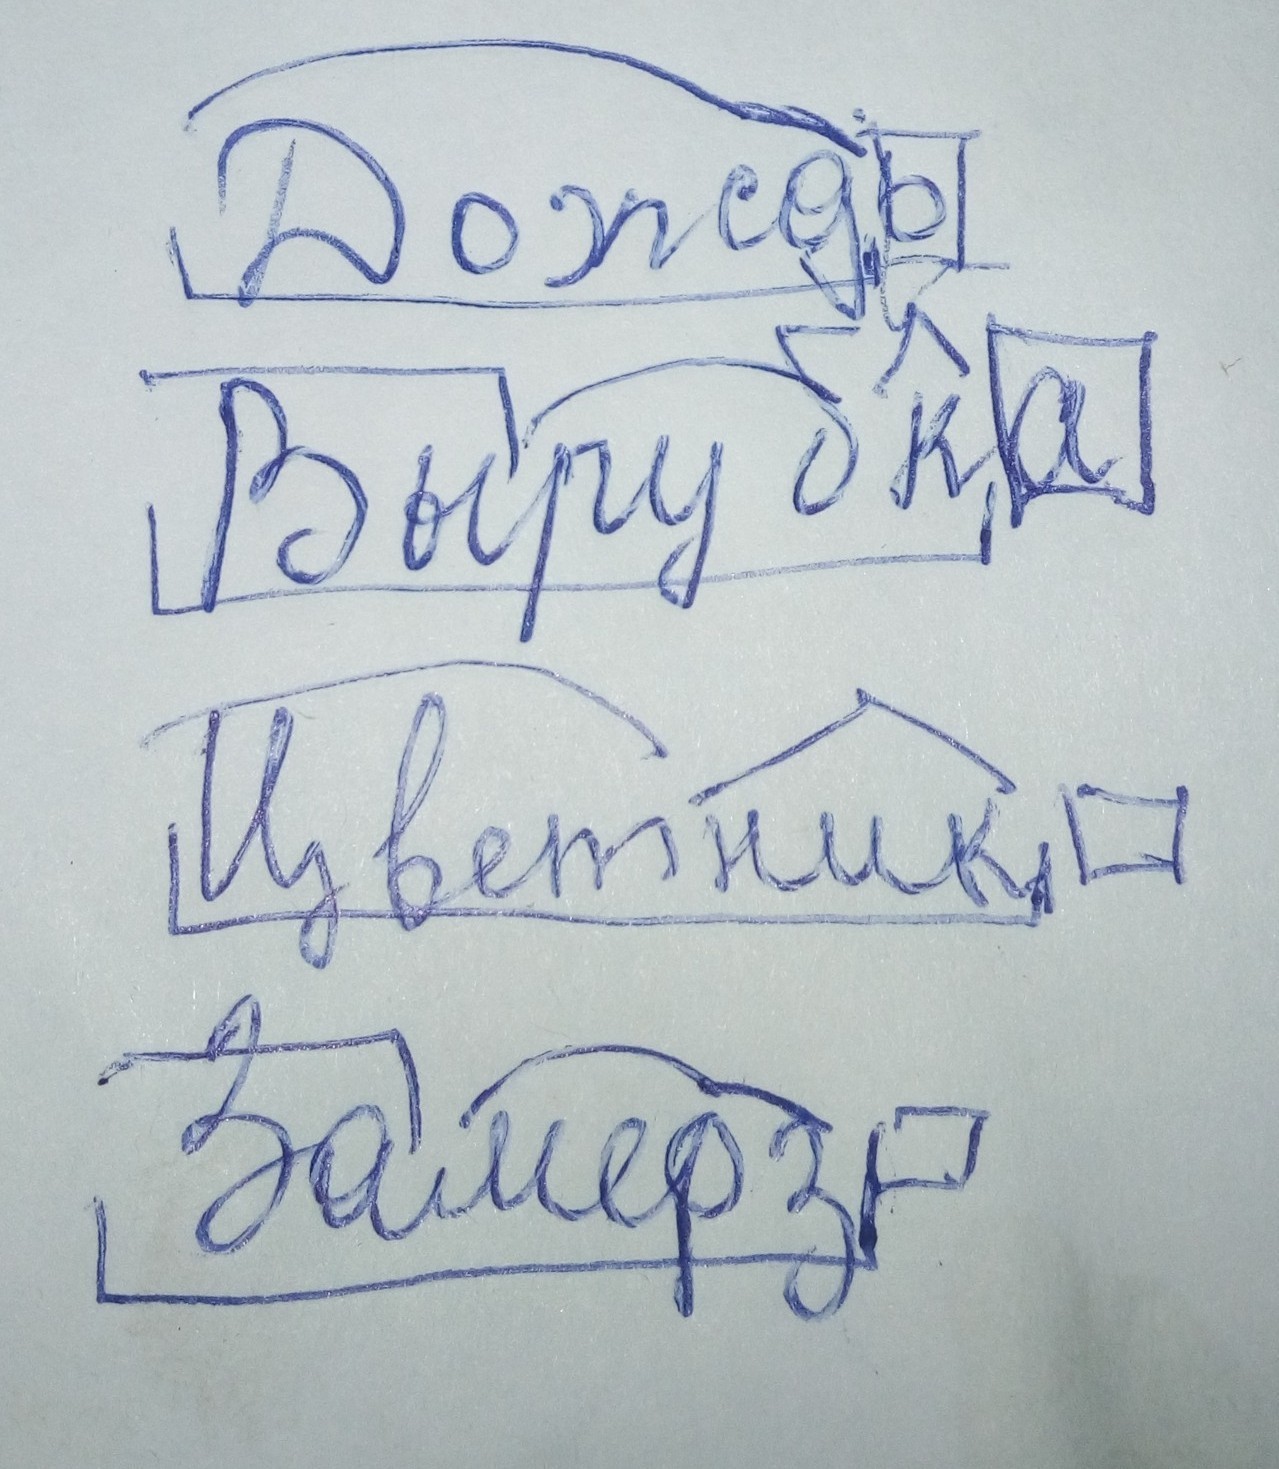 Дождь
Вырубка
Цветник
Замерз